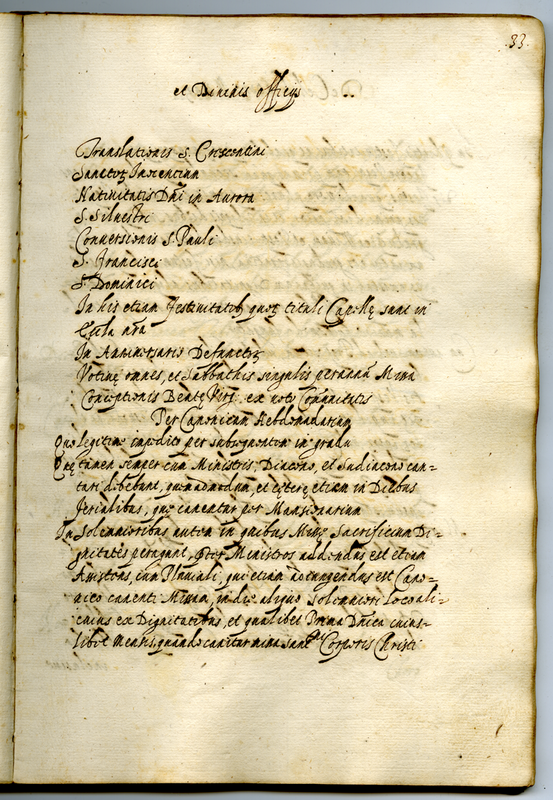 33.
et Diuinis officijs
Translationis S. Crescentini
Sanctoꝝ Innocentum
Natiuitatis Dñi in Aurora
S. Siluestri
Conuersionis S. Pauli
S. Francisci
S. Dominici
In his etiam festiuitatib, quoꝝ tituli Cappellę sunt in
Ecl̃a nr̃a
In Anniversarijs Defunctoꝝ
Votiuę omnes, et Sabbathis singulis per annũ Missa
Conceptionis Beatę Virg. ex uoto Comunitatis
Per Canonicum Hebdomadarium
Quo legitime impedito per subsequentem in gradu
Quę tamen semper cum Ministris, Diacono, et Sudiacono can=
tari debebunt, quemadmodum, et cęterę etiam in Diebus
Ferialibus, quę canentur per Mansionarium
In Solemnioribus autem in quibus Missę Sacrificium Di=
gnitates peragunt, pręter Ministros addendus est etiam
Assistens cum Pluuiali, qui etiam adiungendus est Cano=
nico canenti Missam, in die aliquo Solemniori Loco ali=
cuius ex Dignitatibus, et qualibet Prima Dñica cuius=
libet Mensis, quando canitur missa Sanct.mi Corporis Christi